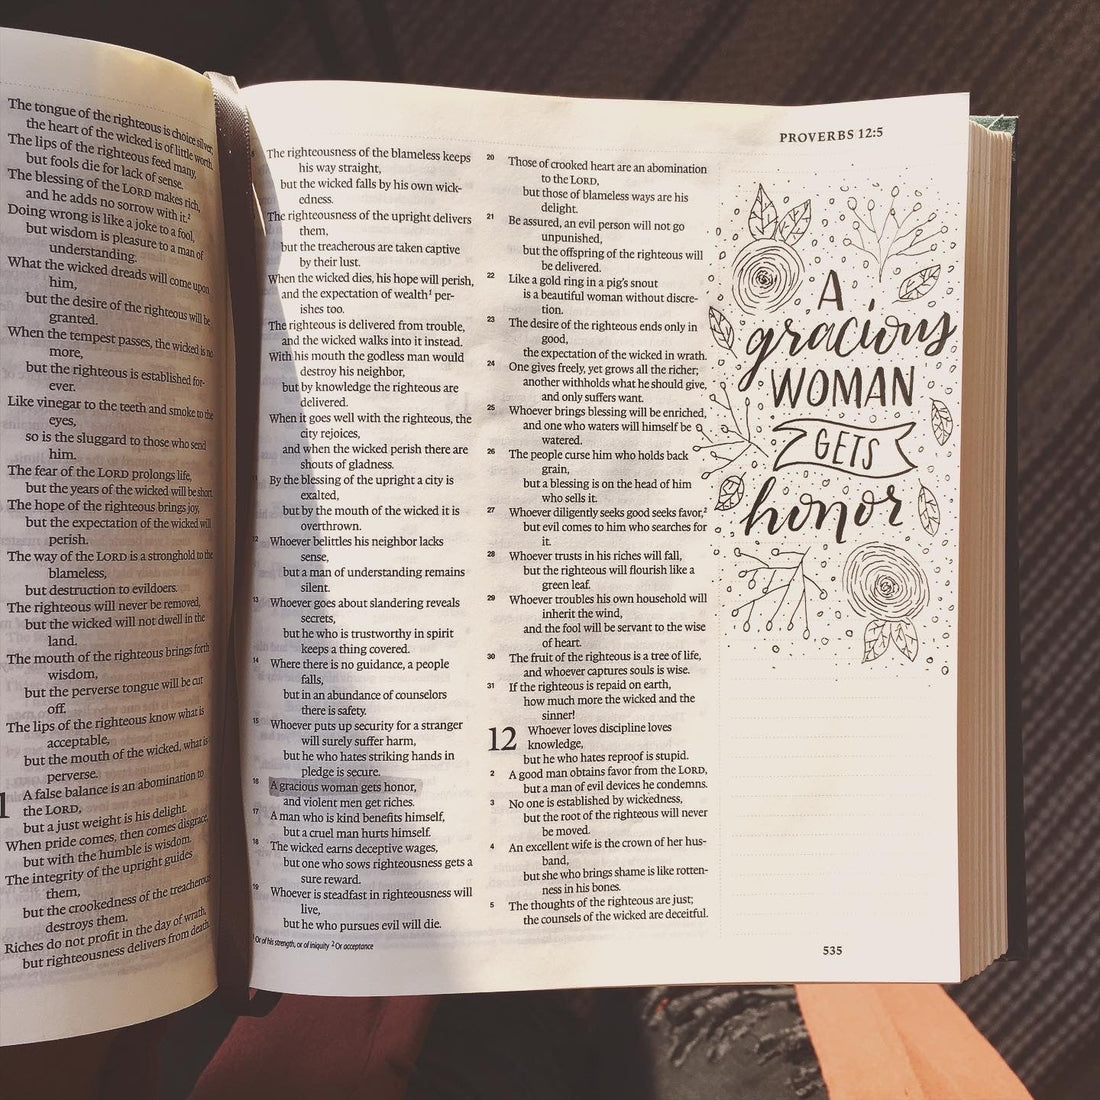 The tongue of the righteous is choice silver;
the heart of the wicked is of little worth.
The lips of the righteous feed many,
but fools die for lack of sense.
The blessing of the LORD makes rich,
and he adds no sorrow with it.²
Doing wrong is like a joke to a fool,
but wisdom is pleasure to a man of
understanding.
What the wicked dreads will come upon
him,
but the desire of the righteous will be
granted.
When the tempest passes, the wicked is no
more,
but the righteous is established for-
ever.
Like vinegar to the teeth and smoke to the
eyes,
so is the sluggard to those who send
him.
The fear of the LORD prolongs life,
but the years of the wicked will be short.
The hope of the righteous brings joy,
but the expectation of the wicked will
perish.
The way of the LORD is a stronghold to the
blameless,
but destruction to evildoers.
The righteous will never be removed,
but the wicked will not dwell in the
land.
The mouth of the righteous brings forth
wisdom,
but the perverse tongue will be cut
off.
The lips of the righteous know what is
acceptable,
but the mouth of the wicked, what is
perverse.
1 A false balance is an abomination to
the LORD,
but a just weight is his delight.
When pride comes, then comes disgrace,
but with the humble is wisdom.
The integrity of the upright guides
them,
but the crookedness of the treacherous
destroys them.
Riches do not profit in the day of wrath,
but righteousness delivers from death.
5 The righteousness of the blameless keeps
his way straight,
but the wicked falls by his own wick-
edness.
The righteousness of the upright delivers
them,
but the treacherous are taken captive
by their lust.
When the wicked dies, his hope will perish,
and the expectation of wealth¹ per-
ishes too.
The righteous is delivered from trouble,
and the wicked walks into it instead.
With his mouth the godless man would
destroy his neighbor,
but by knowledge the righteous are
delivered.
When it goes well with the righteous, the
city rejoices,
and when the wicked perish there are
shouts of gladness.
11 By the blessing of the upright a city is
exalted,
but by the mouth of the wicked it is
overthrown.
12 Whoever belittles his neighbor lacks
sense,
but a man of understanding remains
silent.
13 Whoever goes about slandering reveals
secrets,
but he who is trustworthy in spirit
keeps a thing covered.
14 Where there is no guidance, a people
falls,
but in an abundance of counselors
there is safety.
15 Whoever puts up security for a stranger
will surely suffer harm,
but he who hates striking hands in
pledge is secure.
16 A gracious woman gets honor,
and violent men get riches.
17 A man who is kind benefits himself,
but a cruel man hurts himself.
18 The wicked earns deceptive wages,
but one who sows righteousness gets a
sure reward.
19 Whoever is steadfast in righteousness will
live,
but he who pursues evil will die.
¹ Or of his strength, or of iniquity ² Or acceptance
20 Those of crooked heart are an abomination
to the LORD,
but those of blameless ways are his
delight.
21 Be assured, an evil person will not go
unpunished,
but the offspring of the righteous will
be delivered.
22 Like a gold ring in a pig's snout
is a beautiful woman without discre-
tion.
23 The desire of the righteous ends only in
good,
the expectation of the wicked in wrath.
24 One gives freely, yet grows all the richer;
another withholds what he should give,
and only suffers want.
25 Whoever brings blessing will be enriched,
and one who waters will himself be
watered.
26 The people curse him who holds back
grain,
but a blessing is on the head of him
who sells it.
27 Whoever diligently seeks good seeks favor,²
but evil comes to him who searches for
it.
28 Whoever trusts in his riches will fall,
but the righteous will flourish like a
green leaf.
29 Whoever troubles his own household will
inherit the wind,
and the fool will be servant to the wise
of heart.
30 The fruit of the righteous is a tree of life,
and whoever captures souls is wise.
31 If the righteous is repaid on earth,
how much more the wicked and the
sinner!
12 Whoever loves discipline loves
knowledge,
but he who hates reproof is stupid.
2 A good man obtains favor from the LORD,
but a man of evil devices he condemns.
3 No one is established by wickedness,
but the root of the righteous will never
be moved.
4 An excellent wife is the crown of her hus-
band,
but she who brings shame is like rotten-
ness in his bones.
5 The thoughts of the righteous are just;
the counsels of the wicked are deceitful.
PROVERBS 12:5
A
gracious
WOMAN
GETS
honor
535